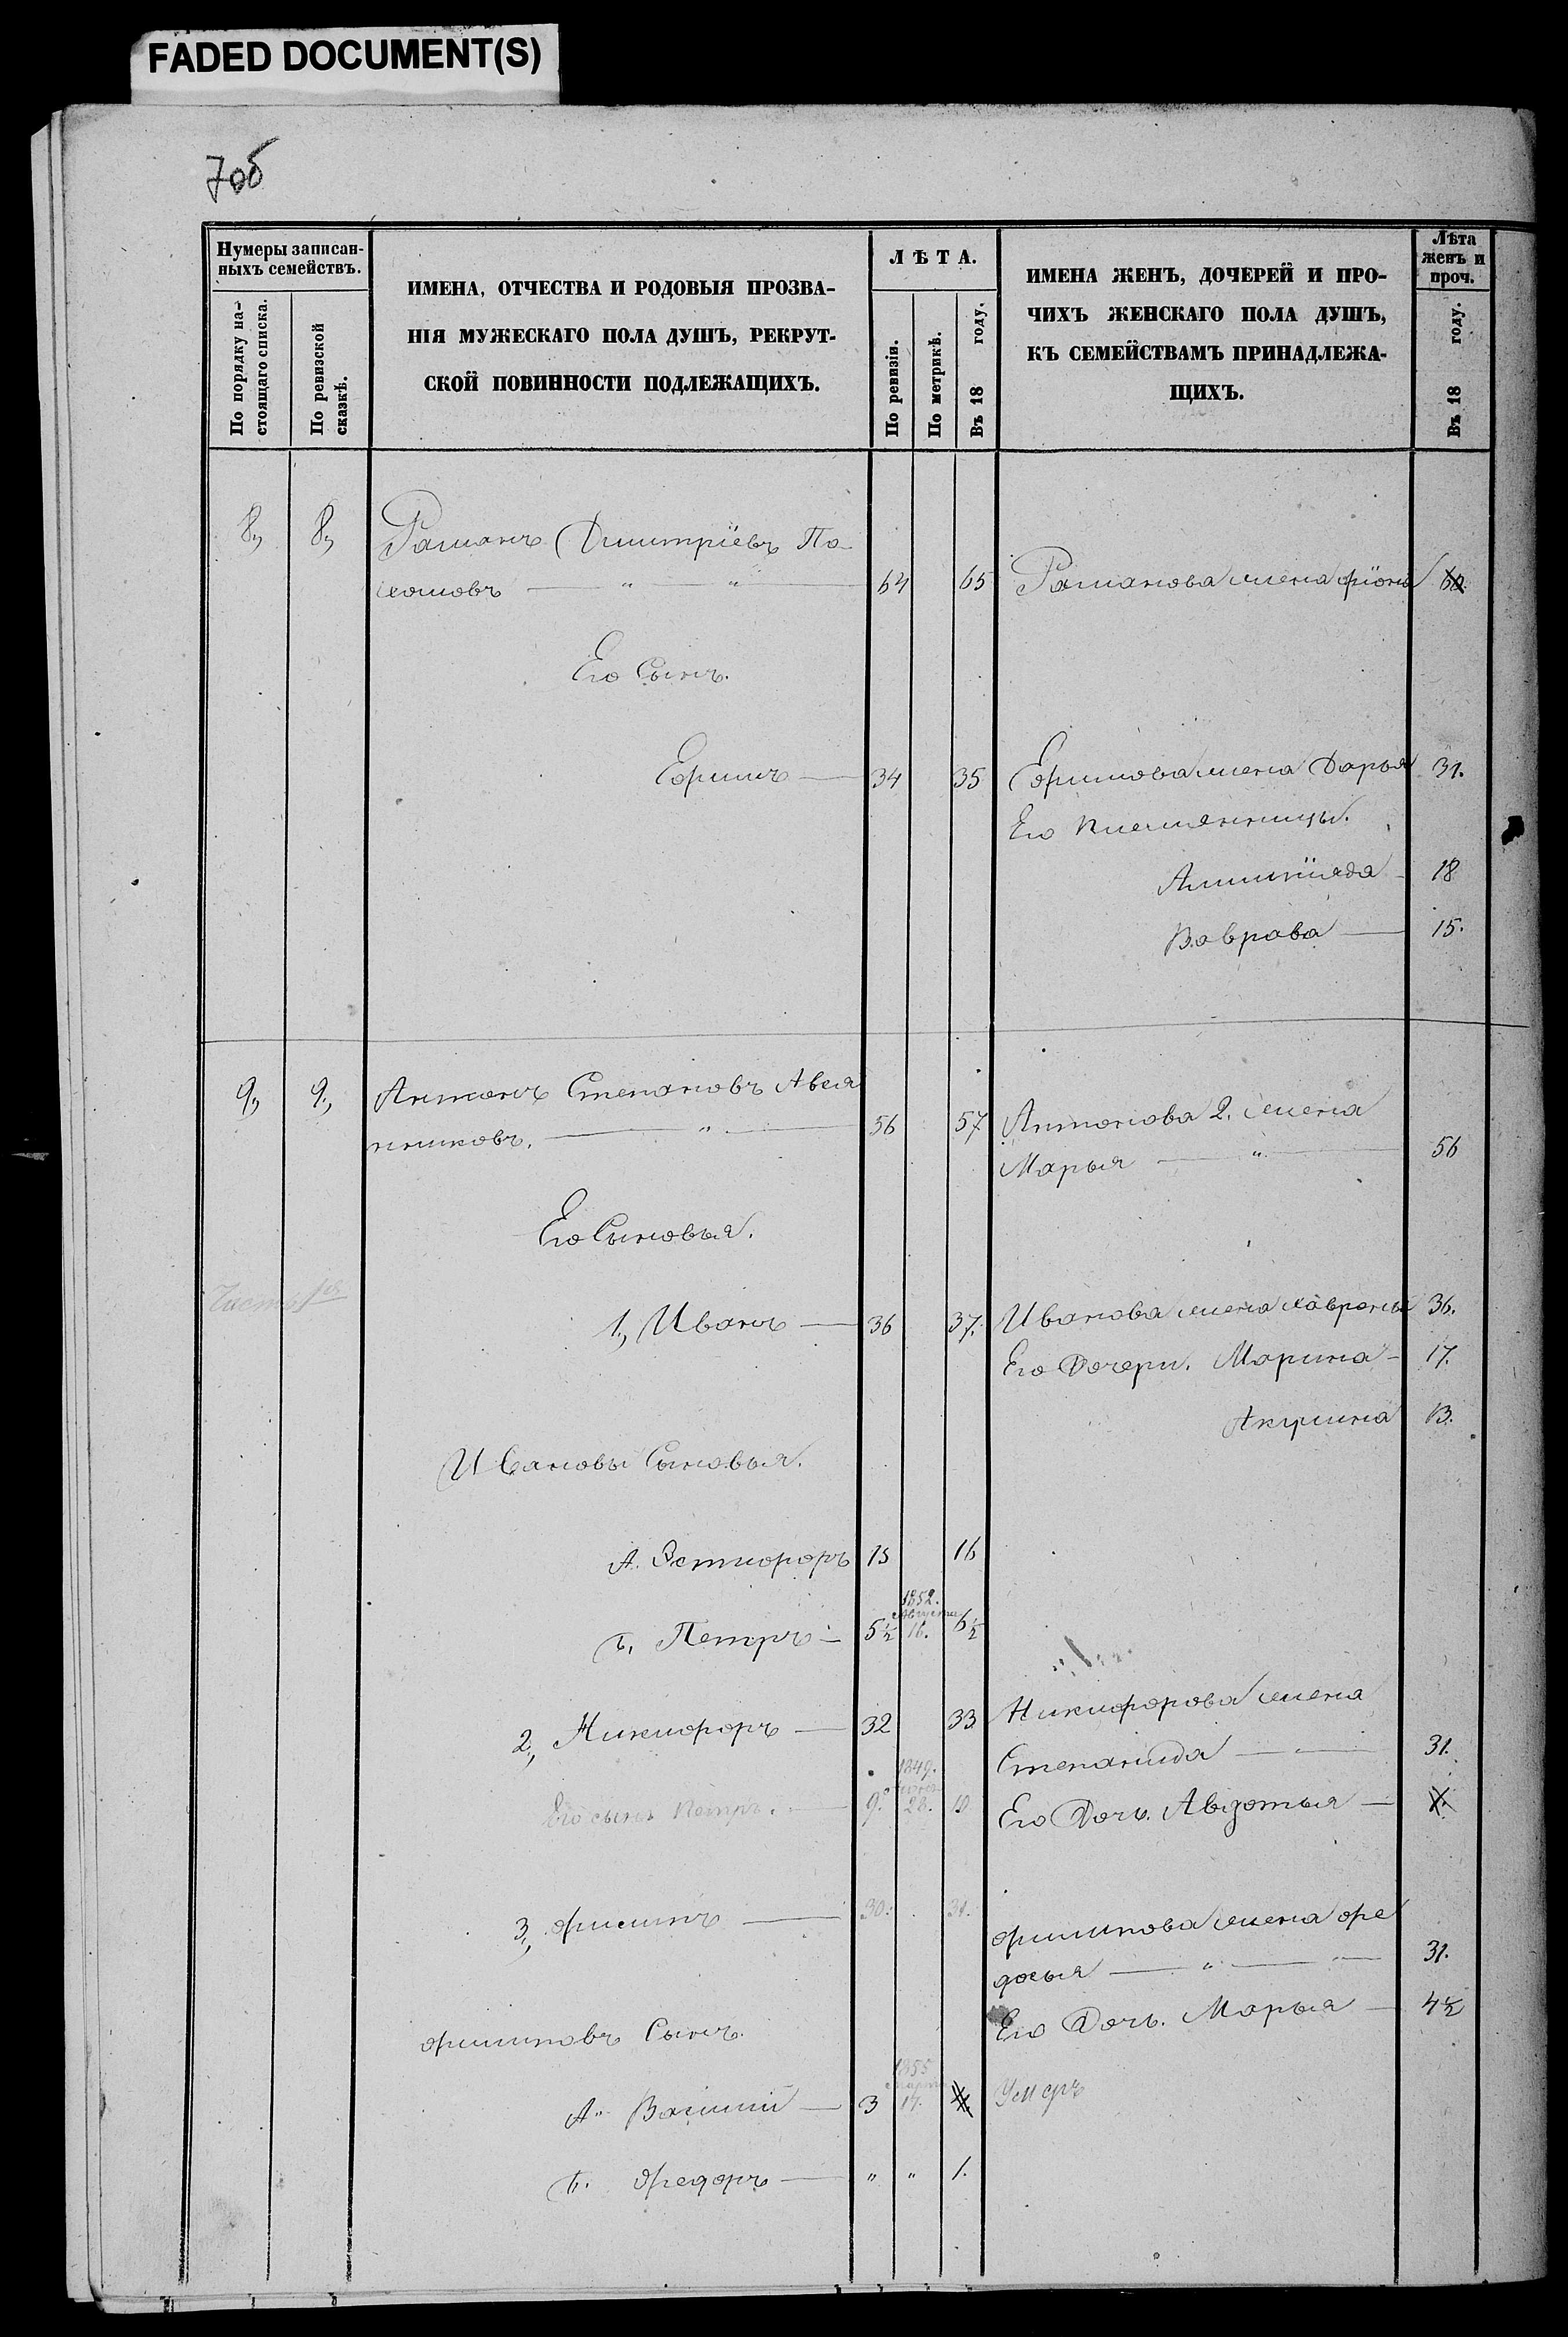 FADED DOCUMENT(S)
7об
Нумеры записан-
ныхъ семействъ.
По порядку на-
стоящаго списка.
По ревизской
сказкѣ.
ИМЕНА, ОТЧЕСТВА И РОДОВЫЯ ПРОЗВА-
НІЯ МУЖЕСКАГО ПОЛА ДУШЪ, РЕКРУТ-
СКОЙ ПОВИННОСТИ ПОДЛЕЖАЩИХЪ.
ЛѢТА.
По ревизіи.
По метрикѣ.
Въ 18 году.
ИМЕНА ЖЕНЪ, ДОЧЕРЕЙ И ПРО-
ЧИХЪ ЖЕНСКАГО ПОЛА ДУШЪ,
КЪ СЕМЕЙСТВАМЪ ПРИНАДЛЕЖА-
ЩИХЪ.
Лѣта
женъ и
проч.
Въ 18 году.
8, 8, Раманъ Дмитріевъ Па-
64 65 Раманова жена 60.
Его Сынъ.
Ефимъ 34 35 Ефимова жена Дарья 31.
Его племянницы.
18
Варвара 15.
9, 9, Антонъ Степановъ Ався
нниковъ. " 56 57 Антонова 2. жена
Марья " 56
Его Сыновья.
Часть 1я
1, Иванъ 36 37. Иванова жена 36.
Его Дочери. Марина 17.
Акулина 13.
Ивановы Сыновья.
А. 15 16
1852.
Августа
Б, Петръ 5½ 16. 6½
2, Никифоръ 32 33 Никифорова жена
Степанида 31.
1849.
Его сынъ Петръ. 9. 28. 10 Его Дочь. Авдотья
3, Филипъ 30. 31.
Филипова жена Фе
досья " 31.
Его Дочь. Марья 4½
Филиповъ Сынъ.
1855
Марта
А. Василий 3 17. 4 Умеръ
Б. Федоръ " " 1.